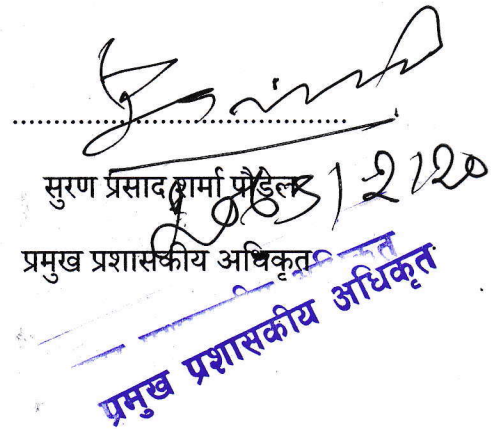 सुरण प्रसाद शर्मा पौडेल
/2/20
प्रमुख प्रशासकीय अधिकृत
प्रमुख प्रशासकीय अधिकृत